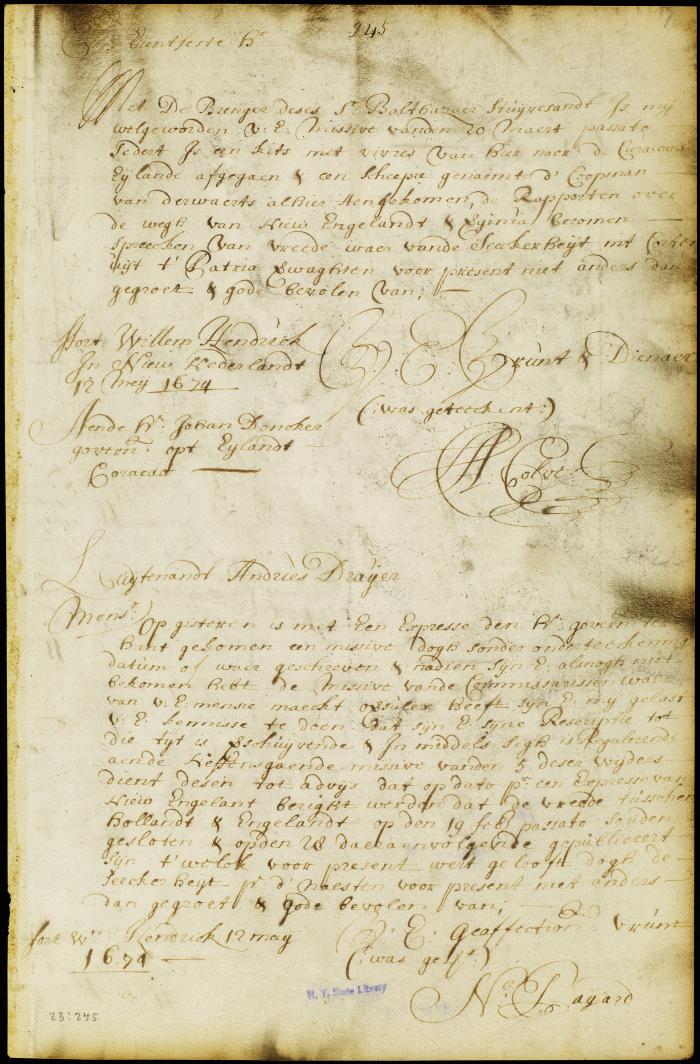 245
Erentfeste Hr
Met De Brenger deses Sr. Balthazaer Stuijvesandt Is mij
welgeworden v: E: missive vanden 20 Maert passato
Sedert Is een kits met vivres van hier naer de Curacaos
Eijlande afgegaen & een scheepie genaemt d' Coopman
van derwaerts alhier Aengekomen, de Rapporten over
de wegh van Nieu Engelandt & Virginia becomen
spreecken van vreede waer vande Seeckerheijt met
uijt t' Patria Verwaghten voor present niet anders dan
gegroet & gode bevolen van;
Fort Willem Hendrick
In Nieu Nederlandt
12 Meij 1674
V: E: Vrunt & Dienaer
(:was geteeckent:)
Aende Hr: Johan Doncker
govern: opt Eylandt
Coracao
A Colve
Luijtenandt Andries Draeyer
Monsr.
Op gisteren is met Een Expresse den Hr: governeur
hant gekomen een missive dogh sonder onderteeckening
datum of waer geschreven & nadien Sijn E: alnogh niet
bekomen hebt de missive vande Commissarissen waer
van v: E: mensie maeckt opsulcx heeft Sijn E: mij gelast
v: E: kennisse te doen dat sijn E: syne Rescriptie tot
die tyt is verschuijvende & In middels sigh is Reguleerende
aende missive vanden 5 deser wijders
dient desen tot advijs dat op dato pr: een Expresse van
Nieu Engelant beright werden dat de vreede tusschen
Hollandt & Engelandt op den 19 feb: passato souden
gesloten & op den 28 daeraenvolgende gepubliceert
sijn t'welck voor present wert gelooft dogh de
seeckerheyt pr: d' naesten voor present niet anders
dan gegroet & gode bevolen van;
fort Wm: Hendrick 12 may
1674
V: E: Geaffection: vrunt
(:was get:)
N: Bayard
N. Y. State Library
23:245